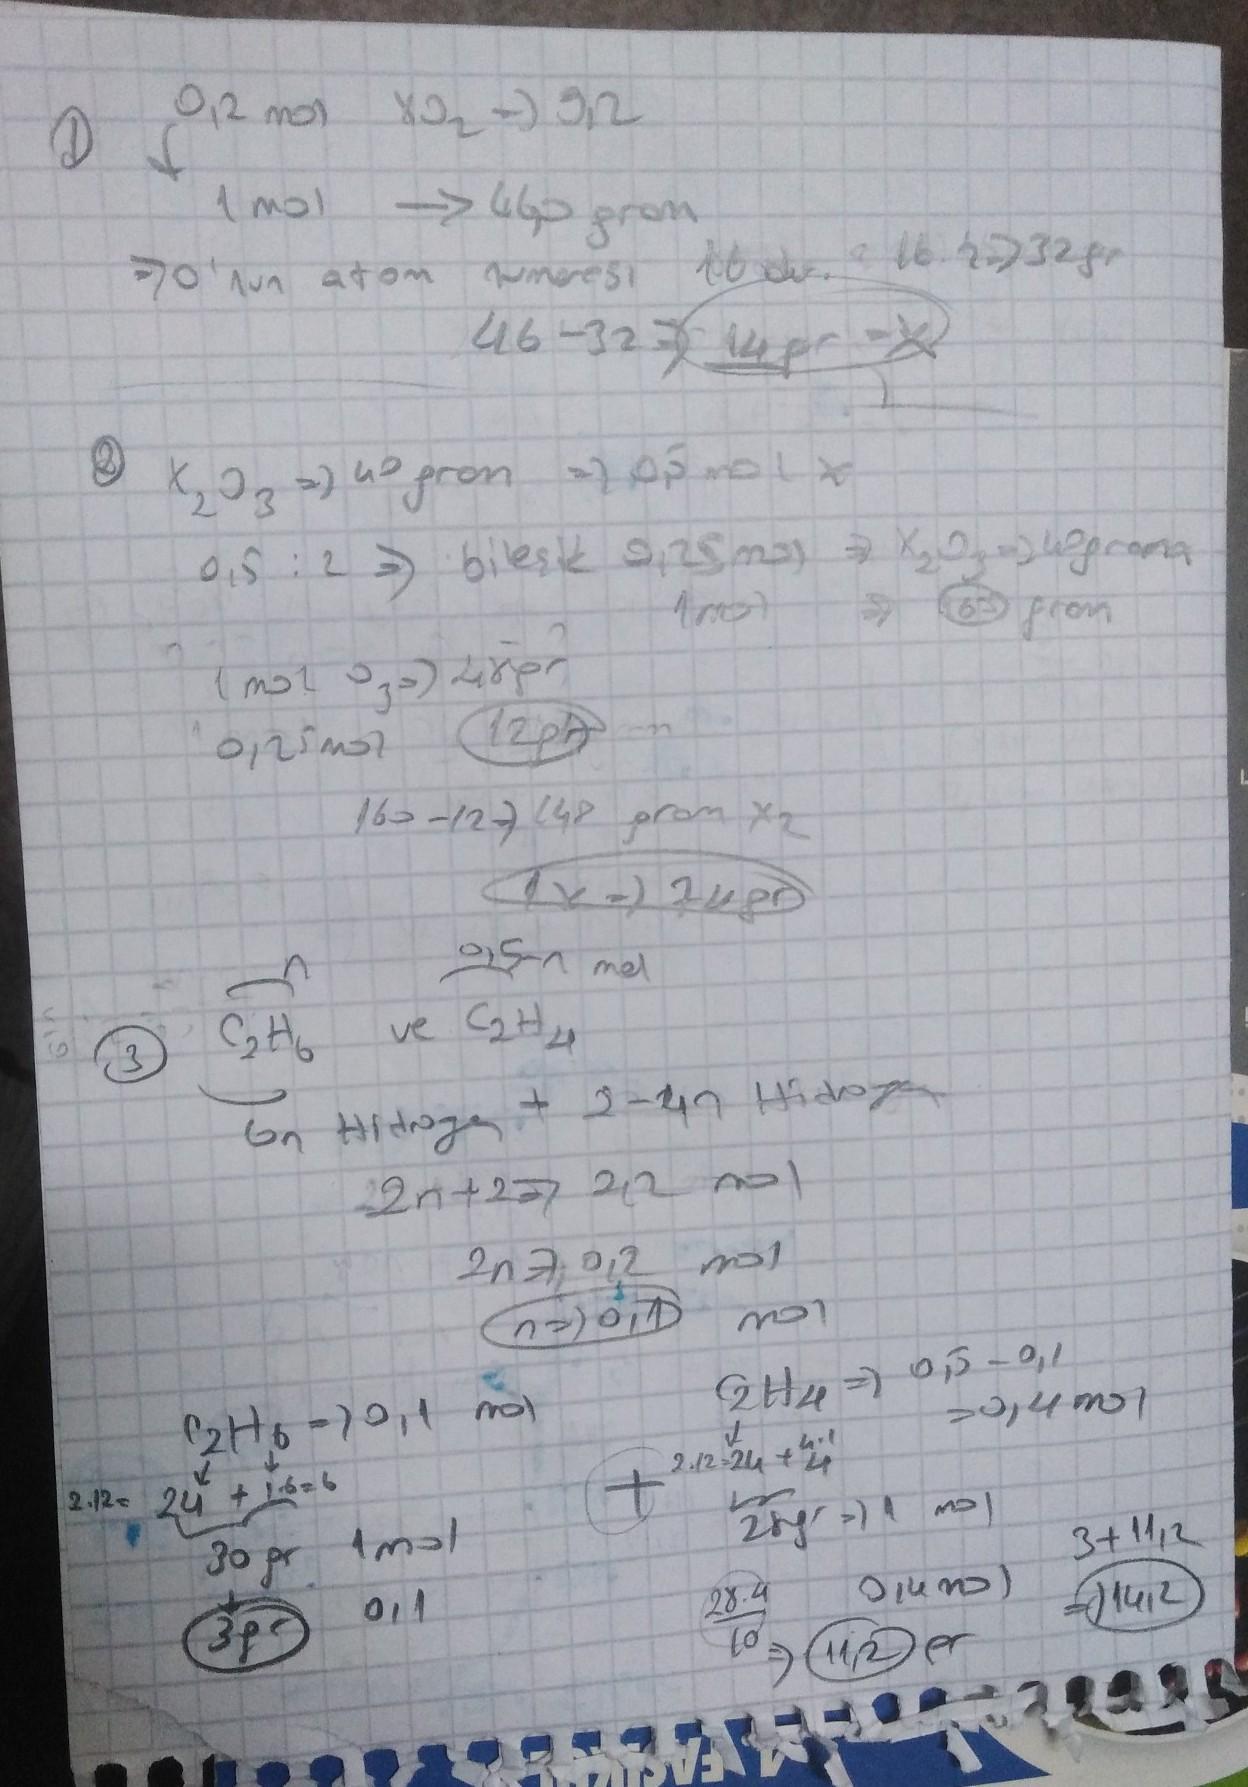 ① 0,2 mol XO₂ => 9,2
↓
1 mol → 46,0 gram
=> O'nun atom numarası 16 dır. = 16.2 => 32gr
46 - 32 => 14gr = X
② X₂O₃ => 40 gram => 0,5 mol X
0,5 : 2 => bileşik 0,25 mol => X₂O₃ => 40 grama
1 mol => 160 gram
1 mol O₃ => 48gr
0,25 mol 12gr
160 - 12 => 148 gram X₂
1X => 74gr
n 0,5-n mol
③ C₂H₆ ve C₂H₄
6n Hidrojen + 2-4n Hidrojen
2n+2 => 2,2 mol
2n => 0,2 mol
n => 0,1 mol
C₂H₄ => 0,5 - 0,1
=> 0,4 mol
C₂H₆ => 0,1 mol
2.12= 24 + 1.6=6
+ 2.12=24 + 4.1 4
30 gr 1 mol
28gr => 1 mol
3gr 0,1
28.4/10 => 11,2 gr 0,4 mol
3+11,2
=> 14,2